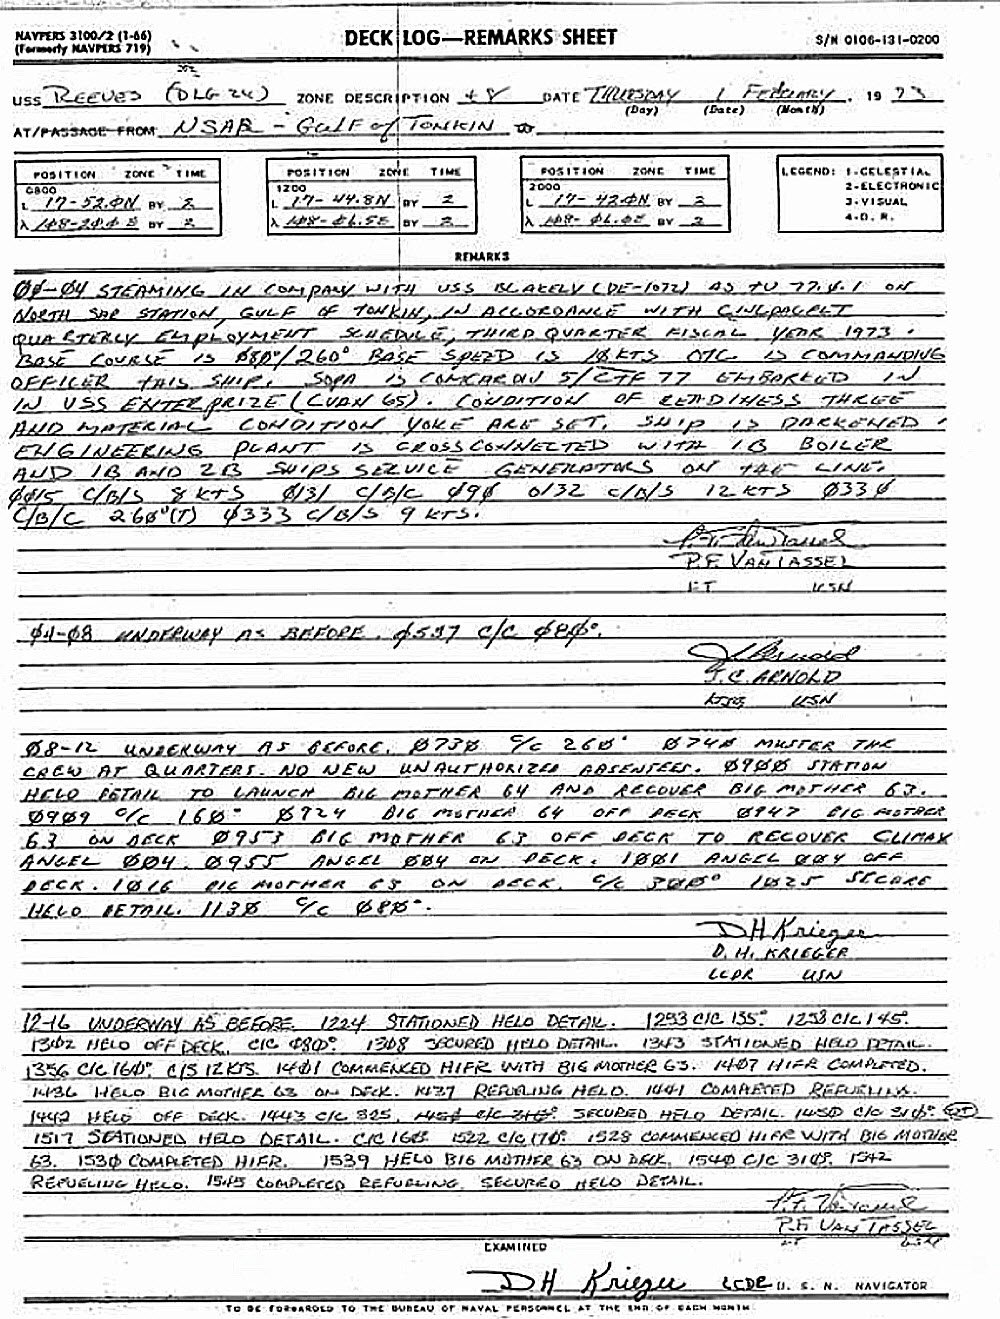 NAVPERS 3100/2 (1-66)
(Formerly NAVPERS 719)
DECK LOG—REMARKS SHEET
S/N 0106-131-0200
USS REEVES (DLG 24) ZONE DESCRIPTION +8 DATE THURSDAY 1 FEBRUARY, 1973
(Day) (Date) (Month)
AT/PASSAGE FROM NSAR - GULF of TONKIN TO
POSITION ZONE TIME
0800
L 17-52.ØN BY 2
λ 1Ø8-20.Ø E BY 2
POSITION ZONE TIME
1200
L 17-44.8N BY 2
λ 1Ø8-Ø6.5E BY 2
POSITION ZONE TIME
2000
L 17-42.ØN BY 2
λ 1Ø8-Ø6.0E BY 2
LEGEND: 1-CELESTIAL
2-ELECTRONIC
3-VISUAL
4-D. R.
REMARKS
ØØ-Ø4 STEAMING IN COMPANY WITH USS BLAKELY (DE-1072) AS TU 77.Ø.1 ON
NORTH SAR STATION, GULF OF TONKIN, IN ACCORDANCE WITH CINCPACFLT
QUARTERLY EMPLOYMENT SCHEDULE, THIRD QUARTER FISCAL YEAR 1973.
BASE COURSE IS Ø8Ø°/260° BASE SPEED IS 1Ø KTS OTC IS COMMANDING
OFFICER THIS SHIP. SOPA IS COMCARDIV 5/CTF 77 EMBARKED IN
IN USS ENTERPRIZE (CVAN 65). CONDITION OF READINESS THREE
AND MATERIAL CONDITION YOKE ARE SET. SHIP IS DARKENED.
ENGINEERING PLANT IS CROSSCONNECTED WITH 1B BOILER
AND 1B AND 2B SHIPS SERVICE GENERATORS ON THE LINE.
ØØ15 C/B/S 8 KTS Ø131 C/B/C Ø9Ø 0132 C/B/S 12 KTS Ø33Ø
C/B/C 26Ø°(T) Ø333 C/B/S 9 KTS.
P.F. VanTassel
P.F. VAN TASSEL
LT USN
Ø4-Ø8 UNDERWAY AS BEFORE. Ø537 C/C Ø8Ø°.
J C Arnold
J.C. ARNOLD
LTJG USN
Ø8-12 UNDERWAY AS BEFORE. Ø73Ø C/C 26Ø° Ø74Ø MUSTER THE
CREW AT QUARTERS. NO NEW UNAUTHORIZED ABSENTEES. Ø9ØØ STATION
HELO DETAIL TO LAUNCH BIG MOTHER 64 AND RECOVER BIG MOTHER 63.
Ø9Ø9 C/C 16Ø° Ø924 BIG MOTHER 64 OFF DECK Ø947 BIG MOTHER
63 ON DECK Ø953 BIG MOTHER 63 OFF DECK TO RECOVER CLIMAX
ANGEL ØØ4. Ø955 ANGEL ØØ4 ON DECK. 1ØØ1 ANGEL ØØ4 OFF
DECK. 1Ø16 BIG MOTHER 63 ON DECK. C/C 3ØØ° 1Ø25 SECURE
HELO DETAIL. 113Ø C/C Ø8Ø°.
DH Krieger
D. H. KRIEGER
LCDR USN
12-16 UNDERWAY AS BEFORE. 1224 STATIONED HELO DETAIL. 1253 C/C 135° 1258 C/C 145°.
13Ø2 HELO OFF DECK. C/C Ø8Ø°. 13Ø8 SECURED HELO DETAIL. 1343 STATIONED HELO DETAIL.
1356 C/C 16Ø°. C/S 12 KTS. 14Ø1 COMMENCED HIFR WITH BIG MOTHER 63. 14Ø7 HIFR COMPLETED.
1436 HELO BIG MOTHER 63 ON DECK. 1437 REFUELING HELO. 1441 COMPLETED REFUELING.
1442 HELO OFF DECK. 1443 C/C 325. 145Ø C/C 31Ø°. SECURED HELO DETAIL. 145Ø C/C 31Ø°.
1517 STATIONED HELO DETAIL. C/C 16Ø°. 1522 C/C 17Ø°. 1528 COMMENCED HIFR WITH BIG MOTHER
63. 153Ø COMPLETED HIFR. 1539 HELO BIG MOTHER 63 ON DECK. 154Ø C/C 31Ø°. 1542
REFUELING HELO. 1545 COMPLETED REFUELING. SECURED HELO DETAIL.
P.F. VanTassel
P.F. VAN TASSEL
LT USN
EXAMINED
DH Krieger LCDR U. S. N. NAVIGATOR
TO BE FORWARDED TO THE BUREAU OF NAVAL PERSONNEL AT THE END OF EACH MONTH